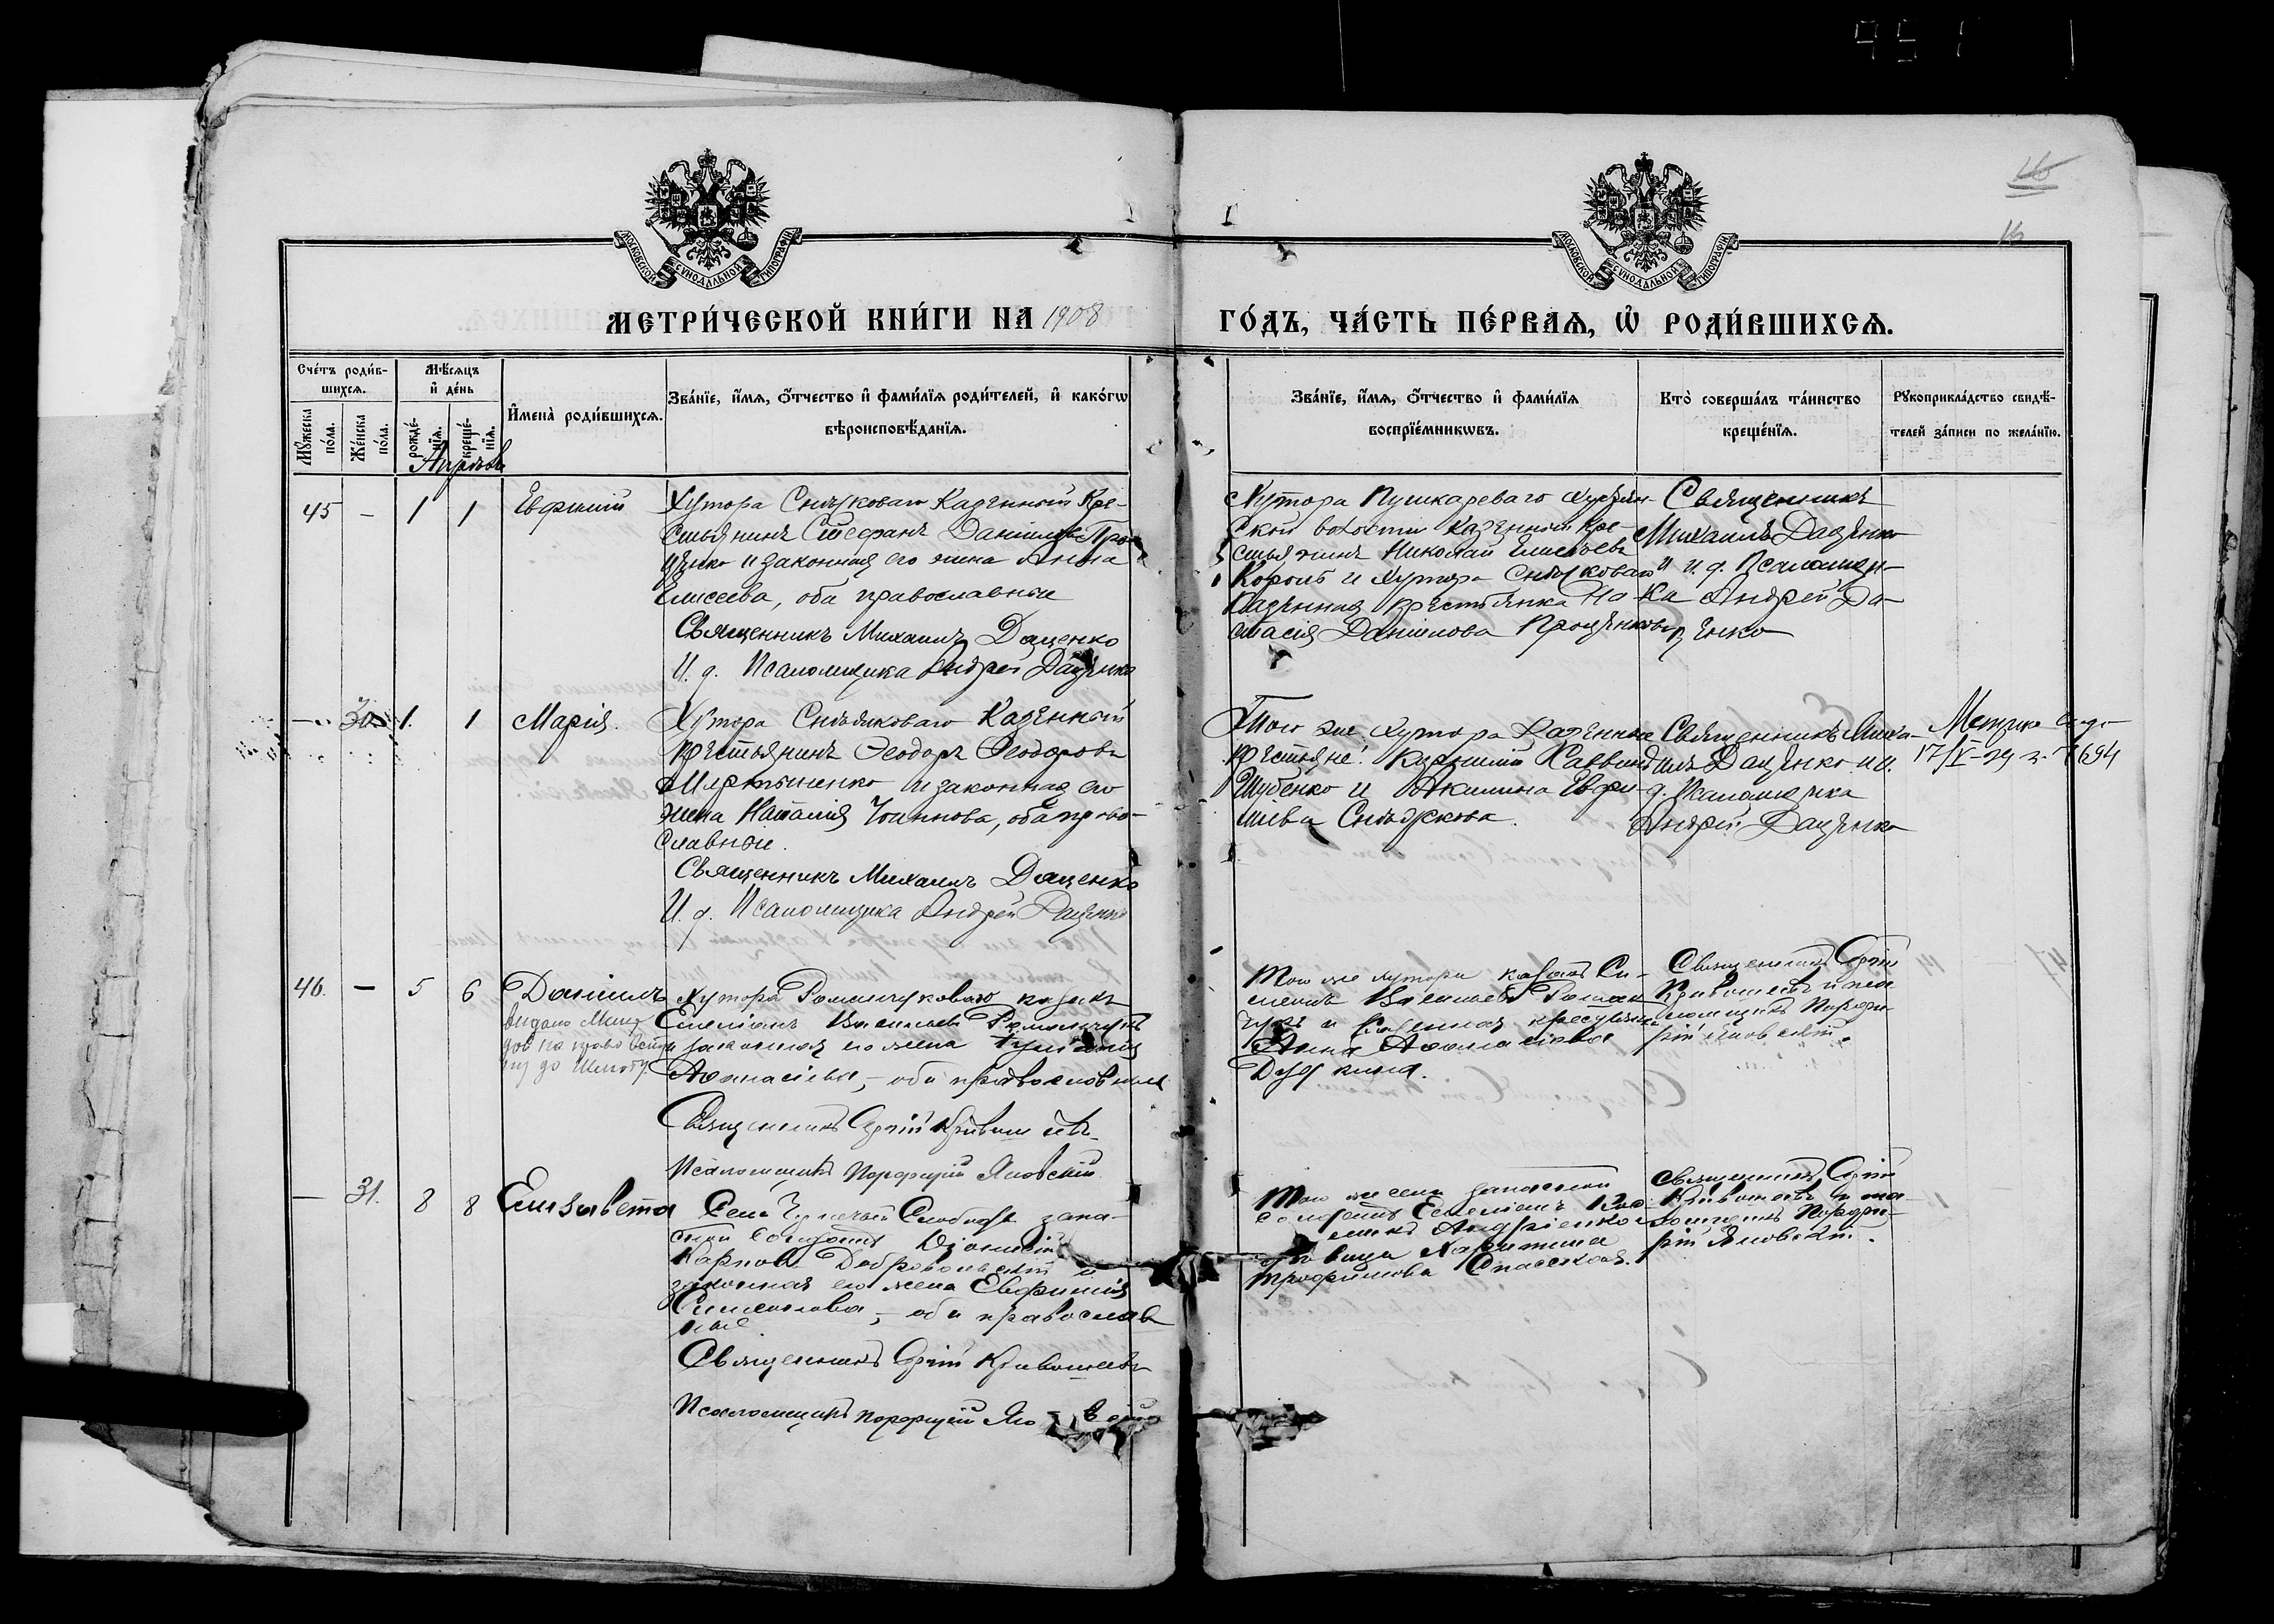 16
16
МОСКОВСКОЙ СУНОДАЛЬНОЙ ТИПОГРАФІИ
МОСКОВСКОЙ СУНОДАЛЬНОЙ ТИПОГРАФІИ
МЕТРИ́ЧЕСКОЙ КНИ́ГИ НА 1908
ГО́ДЪ, ЧА́СТЬ ПЕ́РВАѦ, Ѽ РОДИ́ВШИХСѦ.
Сче́тъ роди́в-
шихсѧ.
Мꙋ́жеска по́ла.
Же́нска по́ла.
Мѣ́сѧцъ и҆ де́нь
рожде́-нїѧ.
креще́-нїѧ.
И҆мена̀ роди́вшихсѧ.
Зва́нїе, и҆́мѧ, ѻ҆́тчество и҆ фами́лїѧ роди́телей, и҆ како́гѡ
вѣроисповѣ́данїѧ.
Зва́нїе, и҆́мѧ, ѻ҆́тчество и҆ фами́лїѧ
воспрїе́мникѡвъ.
Кто̀ соверша́лъ та́инство
креще́нїѧ.
Рꙋкоприкла́дство свидѣ́-
телей за́писи по жела́нїю.
Апрѣль
45 — 1 1 Евфимій
Хутора Казенный Кре-
стьянинъ Стефанъ Даніиловъ Про-
ценко и законная его жена Анна
Елисеева, оба православные
Священникъ Михаилъ Даценко
И. д. Псаломщика Андрей Даценко
Хутора Пушкареваго
ской волости Казенный Кре-
стьянинъ Николай Елисѣевъ
Король и Хутора
Казенная крестьянка На-
стасія Даніилова Проценкова
Священникъ
Михаилъ Даценко
и и. д. Псаломщи-
ка Андрей Да-
ценко
— 30 1 1 Марія
Хутора Казенный
крестьянинъ Ѳеодоръ Ѳеодоровъ
Мартыненко и законная его
жена Наталія Іоаннова, оба право-
славные.
Священникъ Михаилъ Даценко
И. д. Псаломщика Андрей Даценко
Того же хутора Казенные
крестьяне: Савви
Шубенко и Акилина Евфи-
міева
Священникъ Миха-
илъ Даценко и и.
д. Псаломщика
Андрей Даценко
Метрика
17/V-29 г. 1694
46. — 5 6 Даніилъ
Видано
на право
до шлюбу
Хутора Романчуковаго козакъ
Емеліанъ Васильевъ Романчукъ
и законная его жена
Аѳанасіева, — оба православные
Священникъ Сергій Кривошеевъ
Псаломщикъ Порфирій Яновскій
Того же хутора козакъ Си-
меонъ Васильевъ Роман-
чукъ и Казенная крестьянка
Анна Аѳанасіева
Священникъ Сергій
Кривошеевъ и пса-
ломщикъ Порфи-
рій Яновскій.
— 31. 8 8 Елизавета
Села Слобода запа-
сной солдатъ Діонисій
Карповъ Добровольскій и
законная его жена Евфимія
Симеонова, — оба православ
ные.
Священникъ Сергій Кривошеевъ
Псаломщикъ Порфирій
Того же села запасной
солдатъ Емеліанъ Вас-
Андріенко и
дѣвица Харитина
Трофимова Спасская.
Священникъ Сергій
Кривошеевъ и пса-
ломщикъ Порфи-
рій Яновскій.